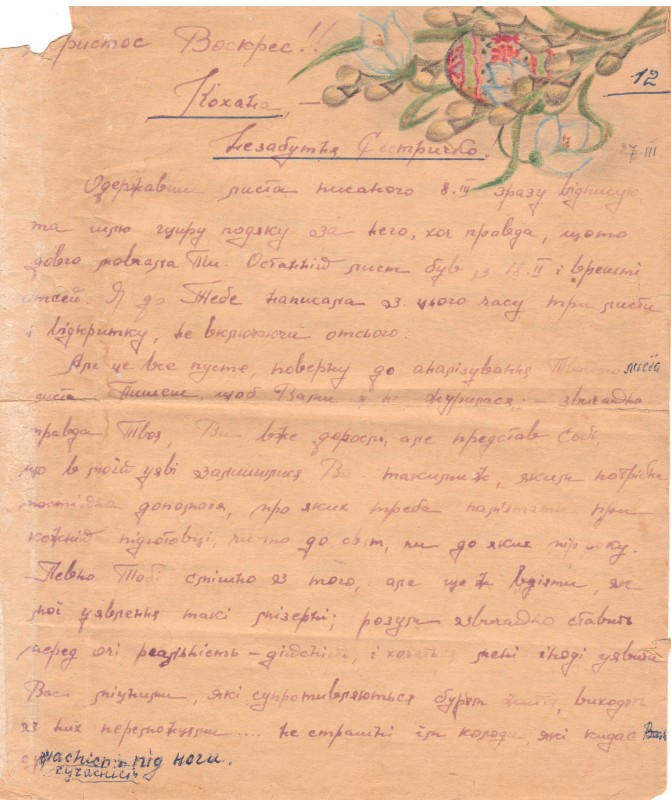 Христос Воскрес!!
12
Кохана, –
Незабутня Сестричко.
27 III
Одержавши листа писаного 8.III зразу відписую,
та шлю щиру подяку за него, хоч правда, щото
довго мовчала Ти. Останній лист був із 18.II і врешті
отсей. Я до Тебе написала за цього часу три листи
і відкритку, не включаючи отсього.
Але це все пусте, поверну до аналізування Твойого листа
листа. Пишеш, щоб Вами я не журилася; – звичайно
правда Твоя, Ви вже дорослі, але представ собі,
що в моїй уяві залишилися Ви такими ж, яким потрібна
постійна допомога, про яких треба памʼятати при
кожній підготовці, чи то до свят, чи до яких
Певно Тобі смішно із того, але що ж вдіяти, як
мої уявлення такі мізерні; розум звичайно ставить
перед очі реальність – дійсність, і хочеться мені іноді уявити
Вас міцними, які супротивляються бурям життя, виходять
із них переможцями .... не страшні їм колоди, які кидає Вам
сучасність під ноги.